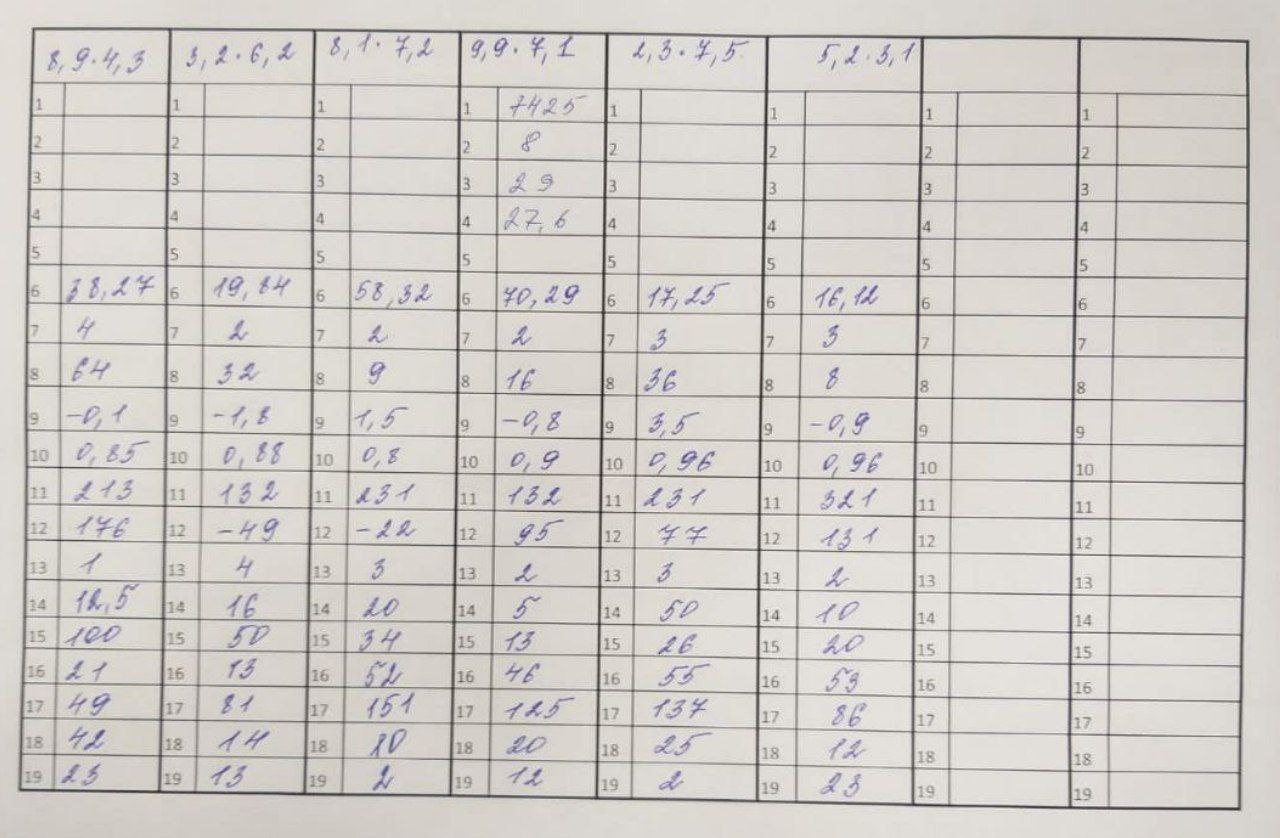 8,9·4,3 3,2·6,2 8,1·7,2 9,9·7,1 2,3·7,5 5,2·3,1
1 1 1 1 7425 1 1 1 1
2 2 2 2 8 2 2 2 2
3 3 3 3 29 3 3 3 3
4 4 4 4 27,6 4 4 4 4
5 5 5 5 5 5 5 5
6 38,27 6 19,84 6 58,32 6 70,29 6 17,25 6 16,12 6 6
7 4 7 2 7 2 7 2 7 3 7 3 7 7
8 64 8 32 8 9 8 16 8 36 8 8 8 8
9 -0,1 9 -1,8 9 1,5 9 -0,8 9 3,5 9 -0,9 9 9
10 0,85 10 0,88 10 0,8 10 0,9 10 0,96 10 0,96 10 10
11 213 11 132 11 231 11 132 11 231 11 321 11 11
12 176 12 -49 12 -22 12 95 12 77 12 131 12 12
13 1 13 4 13 3 13 2 13 3 13 2 13 13
14 12,5 14 16 14 20 14 5 14 50 14 10 14 14
15 100 15 50 15 34 15 13 15 26 15 20 15 15
16 21 16 13 16 52 16 46 16 55 16 53 16 16
17 49 17 81 17 151 17 125 17 137 17 86 17 17
18 42 18 14 18 10 18 20 18 25 18 12 18 18
19 23 19 13 19 2 19 12 19 2 19 23 19 19